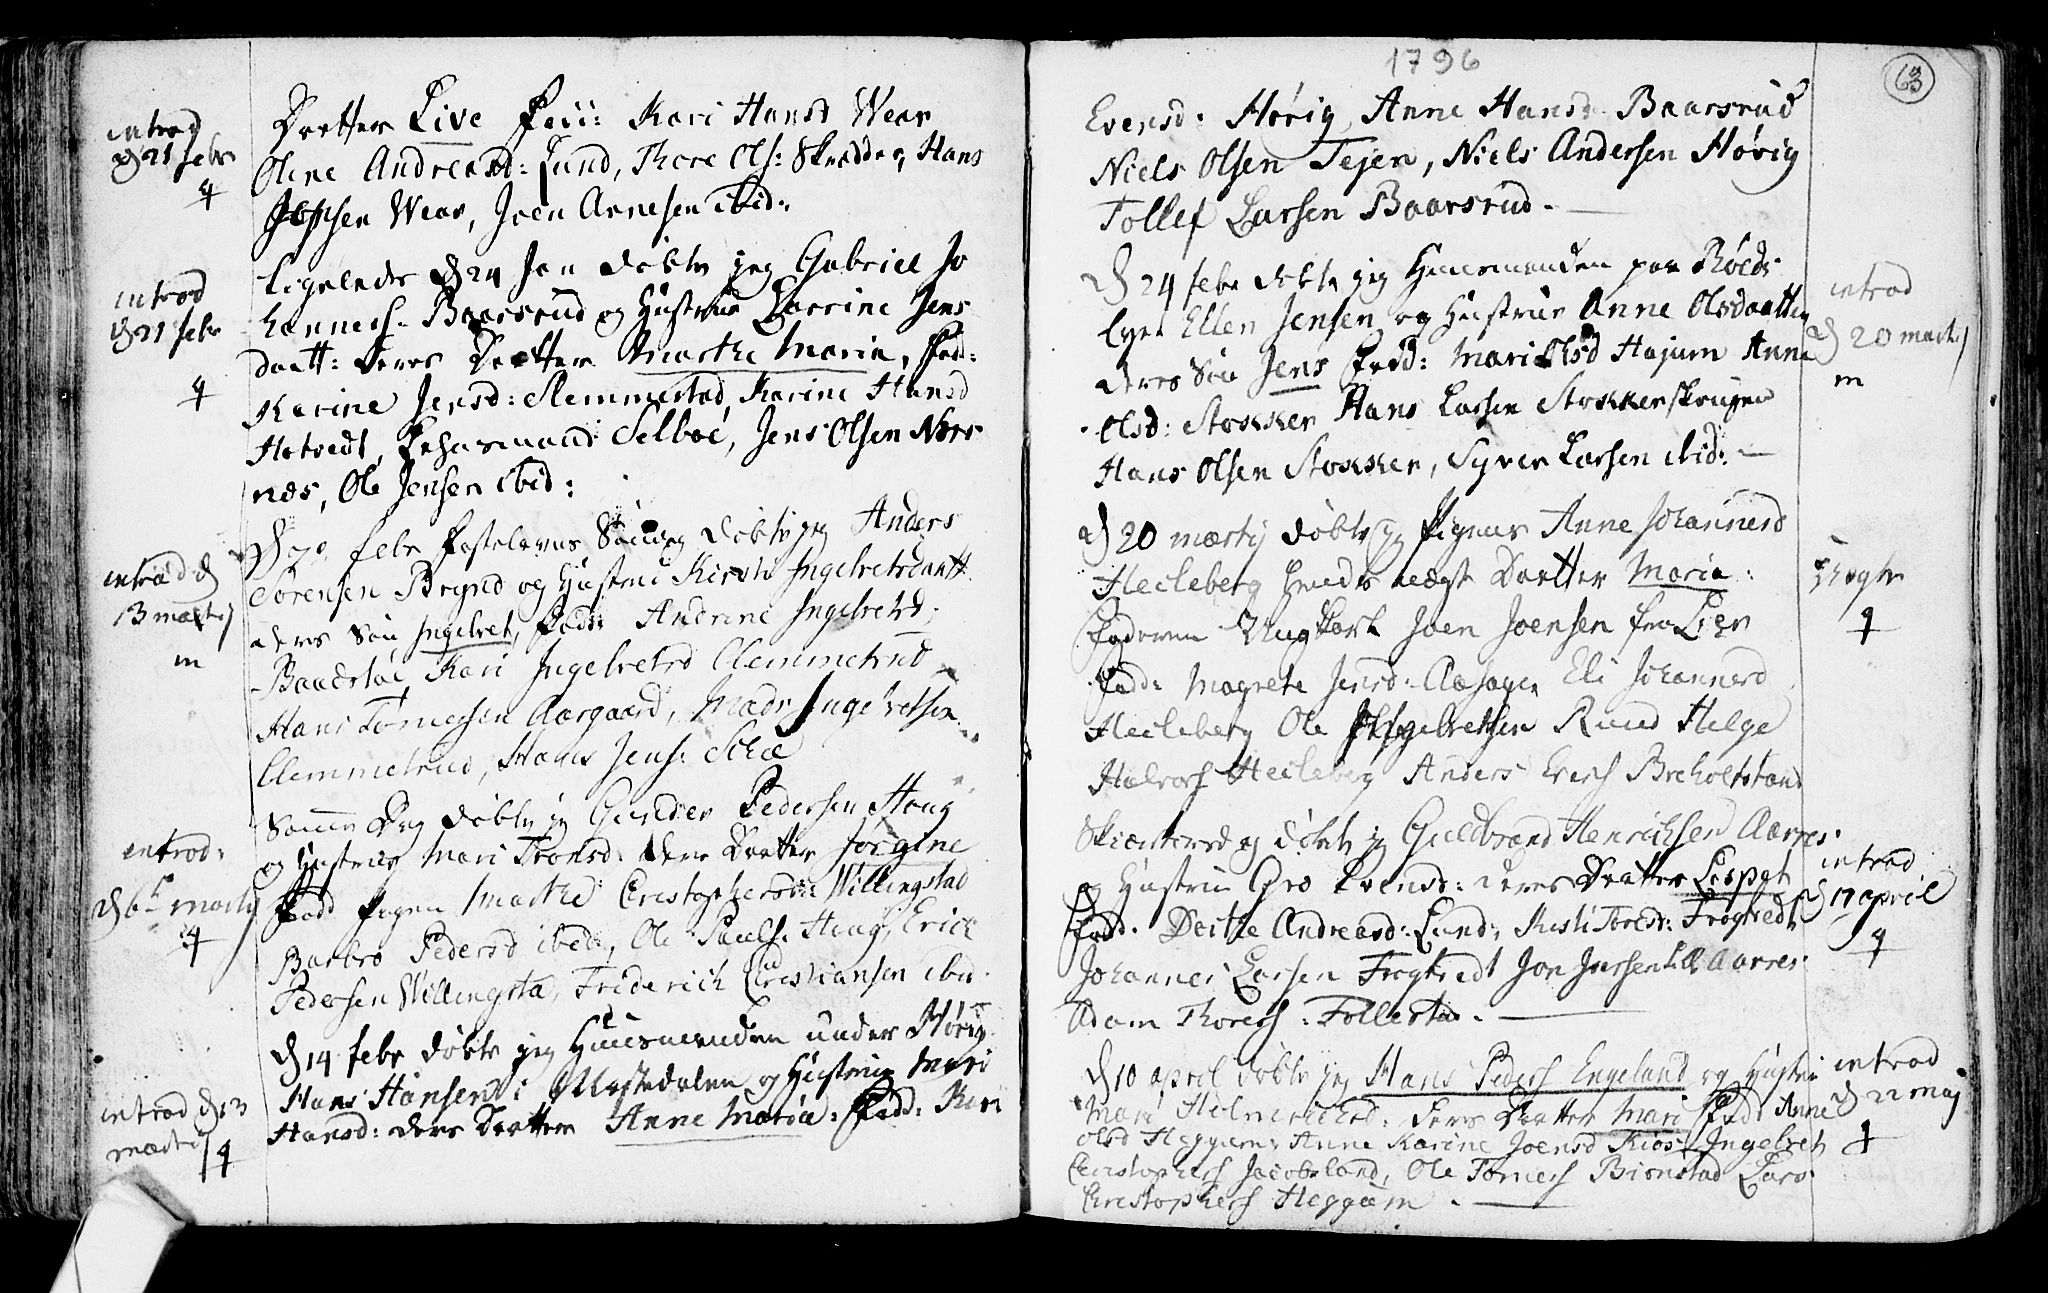 introd
d 21 febr
Daatter Live Fad: Kari Hansd Wear
Olene Andreasd: Lund, Thore Ols: Skredder, Hans
Jepsen Wear, Joen Arnesen ibid:
introd
d 21 febr
Ligeledes d 24 Jan døbte jeg Gabriel Jo
hannesS. Baarsrud og Hustrue Karrine Jens
daatt: deres Daatter Marthe Maria, Fad:
Karine Jensd: Slemmestad, Karine Hansd
Hotvedt, Selboe, Jens Olsen Ners
næs, Ole Jensen ibid:
introd d
13 martij
m
d 7 febr Fastelavns Søndag døbte jeg Anders
Sørensen og Hustrue Kirsti Ingebretsdaatt
deres Søn Ingebret, Fad: Andrine Ingebretsd:
Baadstøe Kari Ingebretsd Clemmetsrud
Hans Tømesen Aargaard, Mads Ingebretsen
Clemmetsrud, Hans Jens:
introd:
d 6te martij
Samme Dag døbte jeg Gunder Pedersen Houg
og Hustrue Mari Tronsd: deres Daatter Jørgine
Fadd Pigen Marthe Christophersd: Willingstad
Barbro Pedersd ibid:, Ole Pauls: Houg, Erick
Pedersen Willingsta, Friderich Christiansen ibid.
introd d 13
martij
d 14 febr døbte jeg Huusmanden under Hørig
Hans Hansen i Mastedalen og Hustrue Mari
Hansd: deres Daatter Anne Maria: Fadd: Kari
1796
63
Evensd: Hørig, Anne Hansd Baarsrud
Niels Olsen Tejen, Niels Andersen Hørig
Tollef Larsen Baarsrud.
d 24 febr døbte jeg Huusmanden paa Røeds
Eyer Ellen Jensen og Hustrue Anne Olsdaatter
deres Søn Jens Fadd: Mari Olsd Hajum Anne
Olsd: Stokker Hans Larsen Stokkerskougen
Hans Olsen Stokker, Syver Larsen ibid:
introd
d 20 martij
m
d 20 martij døbte jeg Pigens Anne Johannesd
Hecleberg hendes uægte Daatter Maria:
Faderen Ung Karl Joen Joensen fra Lier
Fadd: Magrete Jensd: Aasagen Eli Johannesd
Hecleberg Ole Ingebretsen Ruud Helge
HalvorS Hecleberg Anders EvenS Breholtstand
Uægte
Skiertorsdag døbte jeg Guldbrand Henrichsen Aarres
og Hustrue Gro Evensd: deres Daatter Lispet
Fadd. Dorthe Andreasd: Lund, Kirsti Toresd: Frogtvedt
Johannes Larsen Frogtvedt Jon Iversen Aarres
Adam ThoresS: Follestad.
introd
d 17 april
d 10 april døbte jeg Hans PedersS Engeland og Hustrue
Mari Helmerichsd: deres Daatter Mari Fadd: Anne
Olsd Heggum, Anne Karine Joensd Kiøs, Ingebret
ChristophersS Jacobsland, Ole TømesS Biørnstad Lars
ChristophersS Heggum.
introd
d 22 maj